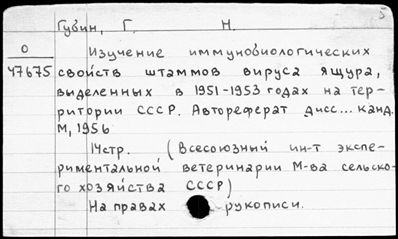 Губин, Г. Н. 5
О
47675
Изучение иммунобиологических
свойств штаммов вируса ящура,
выделенных в 1951-1953 годах на тер-
ритории СССР. Автореферат дисс... канд.
М, 1956
14стр. (Всесоюзный ин-т экспе-
риментальной ветеринарии М-ва сельско-
го хозяйства СССР)
На правах рукописи.